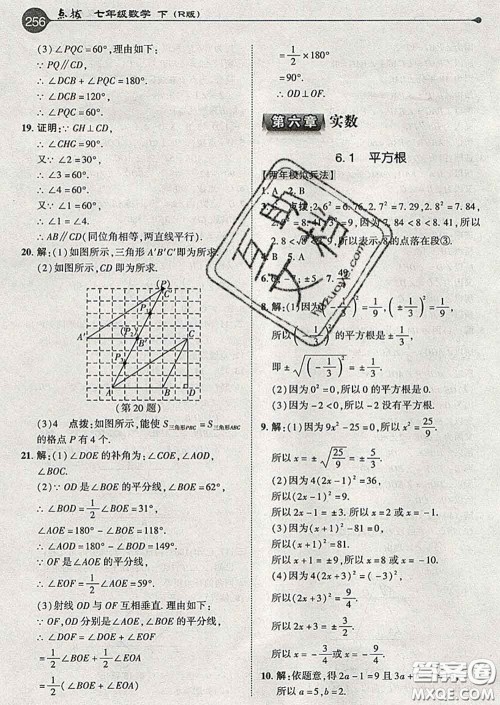 256 点拨 七年级数学 下(R版)
(3)∠PQC=60°,理由如下:
∵PQ∥CD,
∴∠DCB+∠PQC=180°.
∵∠DCB=120°,
∴∠PQC=60°.
19.证明:∵GH⊥CD,
∴∠CHG=90°.
又∵∠2=30°,
∴∠3=60°.
又∵∠4=60°,
∠1=60°.
∴∠1=∠4.
∴AB∥CD(同位角相等,两直线平行).
20.解:(1)如图所示,△A′B′C′即为所求.
(2)如图所示,CD即为所求.
(P)
A′ C′
(P) B′ C
P
A B D
(第20题)
(3)4 点拨:如图所示,能使S三角形PBC=S三角形ABC
的格点P有4个.
21.解:(1)∠DOE的补角为:∠COE,∠AOD,
∠BOC.
(2)∵OD是∠BOE的平分线,∠BOE=62°,
∴∠BOD=1/2∠BOE=31°,
∠AOE=180°-∠BOE=118°.
∴∠AOD=180°-∠BOD=149°.
∵OF是∠AOE的平分线,
∴∠EOF=1/2∠AOE=59°.
(3)射线OD与OF互相垂直.理由如下:
∵OF,OD分别是∠AOE,∠BOE的平分线,
∴∠DOF=∠DOE+∠EOF
=1/2∠BOE+1/2∠EOA
=1/2(∠BOE+∠EOA)
=1/2×180°
=90°.
∴OD⊥OF.
第六章 实数
6.1 平方根
【两年模拟兵法】
1.A 2.B
点拨:2.6²=6.76,2.7²=7.29,2.8²=7.84,
因为7.84<8<8.41,所以
2.8<√8<2.9,所以表示√8的点落在段③.
5.A
8.解:(1)因为√(-1/3)²=√1/9,(±1/3)²=1/9,
所以√(-1/3)²的平方根为±1/3,
即±√(-1/3)²=±1/3.
(2)因为0²=0,所以0的平方根是0.
9.解:(1)因为9x²-25=0,所以x²=25/9.
所以x=±√25/9.
所以x=±5/3.
(2)因为4(2x-1)²=36,
所以(2x-1)²=9.
所以2x-1=±3.
所以2x-1=3或2x-1=-3.
所以x=2或x=-1.
(3)因为(x+1)²-81=0,
所以(x+1)²=81.
所以x+1=±9.
所以x=8或x=-10.
(4)因为4(2x+3)²=(-3)²,
所以(2x+3)²=9/4.
所以2x+3=±3/2.
所以x=-3/4或x=-9/4.
10.解:依题意,得2a-1=9且3a+
所以a=5,b=2.
互助文档
hizuoye.com
答案圈
MXQE.COM